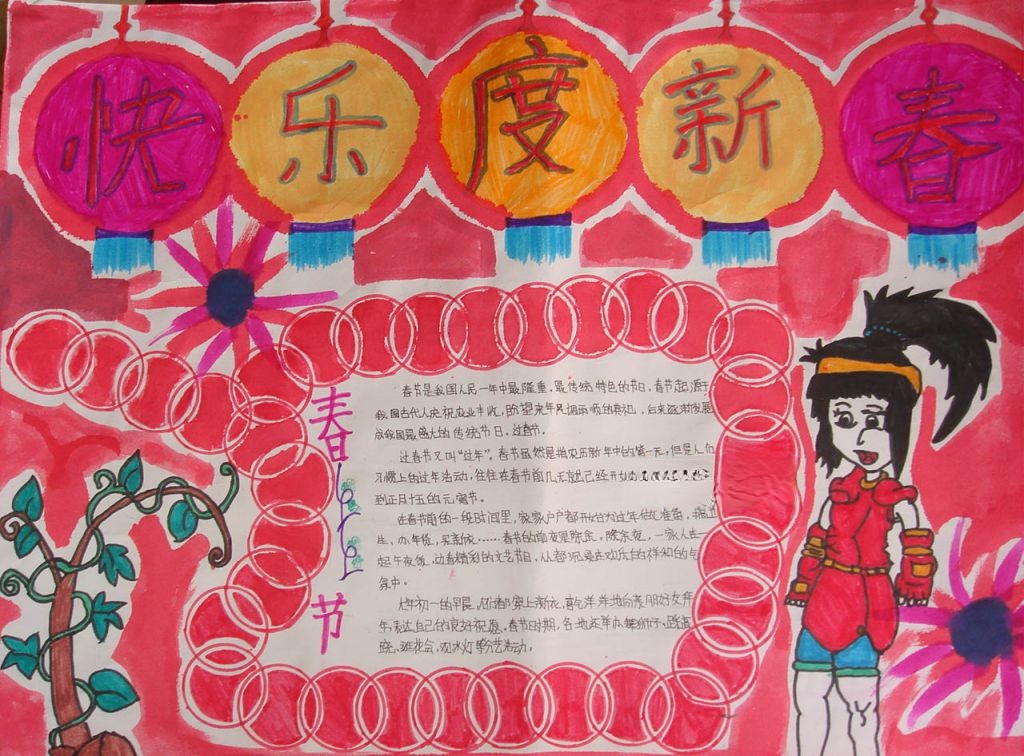 快乐度新春
春节
春节是我国人民一年中最隆重,最传统特色的节日,春节起源于
我国古代人庆祝农业丰收,盼望来年风调雨顺的典礼,后来逐渐发展
成我国最盛大的传统节日,过春节。
过春节又叫“过年”,春节虽然是指农历新年中的第一天,但是人们
习惯上的过年活动,往往在春节前几天就已经开始
到正月十五的元宵节。
在春节前的一段时间里,家家户户都开始为过年做准备,
办年货,买新衣……春节的前夜是除夕,除夕夜,一家人在一
起午夜饭,边看精彩的文艺节目,人都沉浸在欢乐的祥和的气
氛中。
大年初一的早晨,人们都穿上新衣,喜气洋洋地向亲朋好友拜
年表达自己的良好祝愿,春节时期,各地还举办舞狮子,踩高
跷,逛花会,观冰灯等游艺活动,